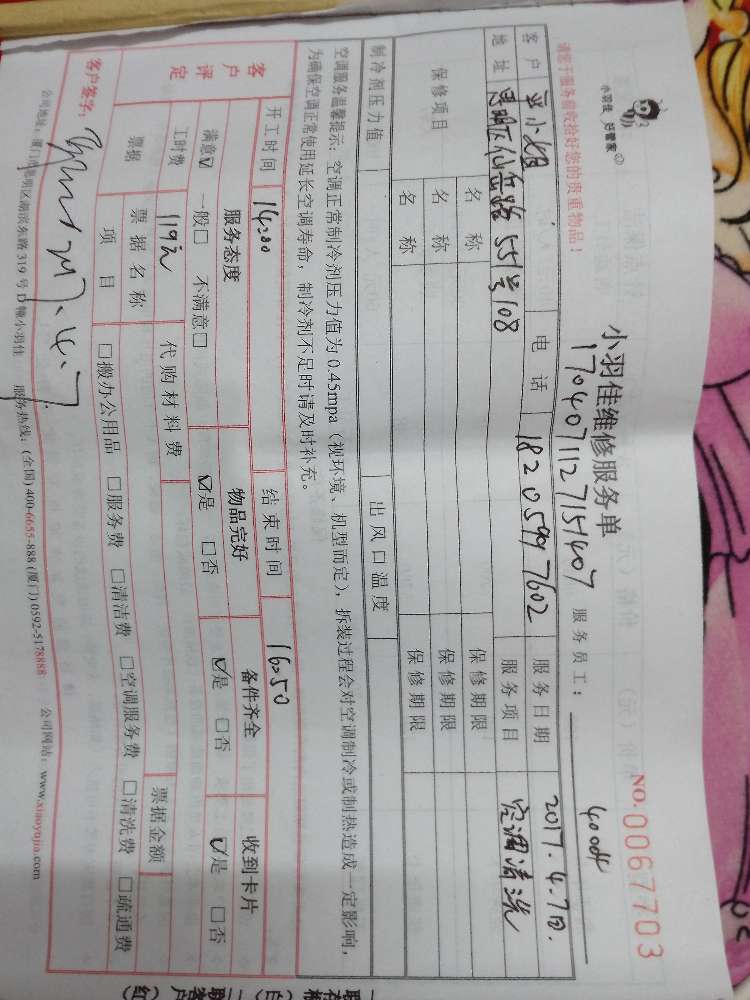 小羽佳 好管家
小羽佳维修服务单
NO. 0067703
1704071127151407
服务员工：
请您于服务前收拾好您的贵重物品！
客户 小姐 电话 18205997602 服务日期 2017.4.7日.
地址 思明区仙岳路551号108 服务项目 空调清洗
保修项目 名称 保修期限
名称 保修期限
名称 保修期限
制冷剂压力值 出风口温度
空调服务温馨提示：空调正常制冷剂压力值为0.45mpa（视环境、机型而定），拆装过程会对空调制冷或制热造成一定影响，
为确保空调正常使用延长空调寿命，制冷剂不足时请及时补充。
开工时间 14:00 结束时间 16:50
客户评定 服务态度 物品完好 备件齐全 收到卡片
满意☑ 一般□ 不满意□ ☑是 □否 ☑是 □否 ☑是 □否
工时费 119元 代购材料费
票据 票据名称 票据金额
项目 □搬办公用品 □服务费 □清洁费 □空调服务费 □清洗费 □疏通费
客户签字： 2017.4.7.
公司地址：厦门思明区湖滨东路319号D幢小羽佳 服务热线：(全国) 400-6655-888 (厦门) 0592-5178888 公司网站：www.xiaoyujia.com